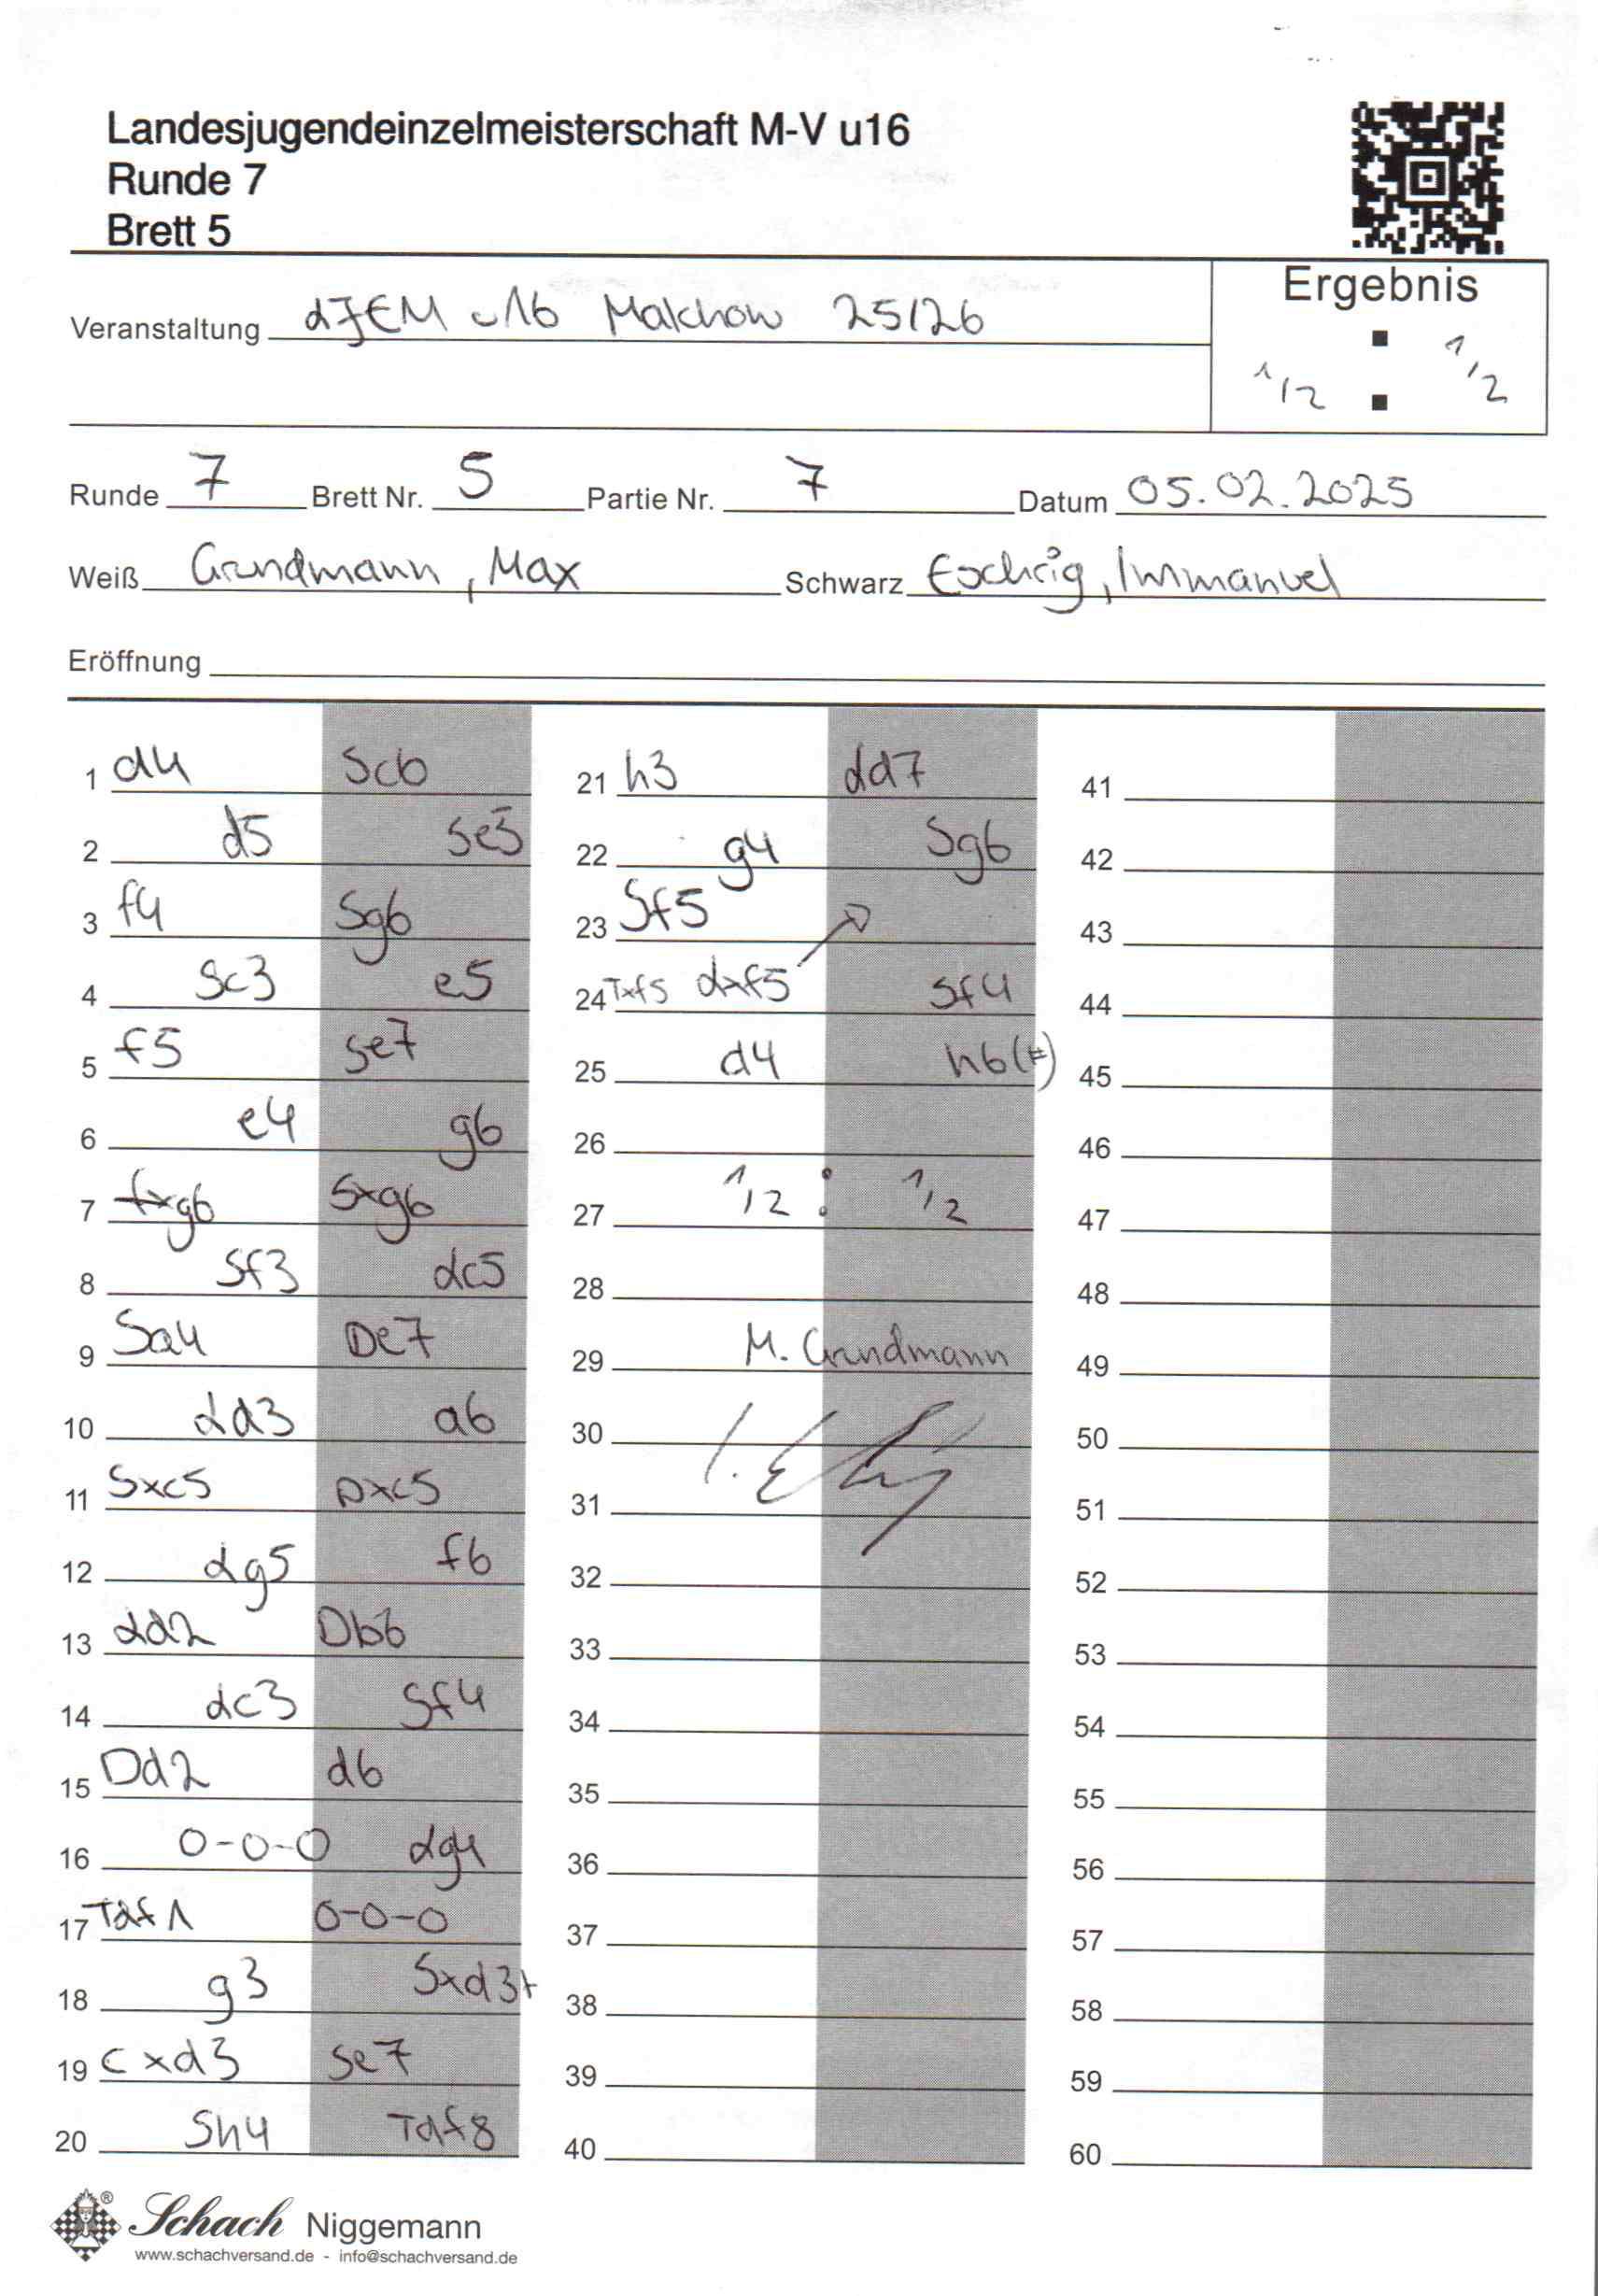 Landesjugendeinzelmeisterschaft M-V u16
Runde 7
Brett 5
Ergebnis
Veranstaltung LJEM u16 Malchow 25/26
1/2 : 1/2
Runde 7 Brett Nr. 5 Partie Nr. 7 Datum 05.02.2025
Weiß Grundmann, Max Schwarz Eschrig, Immanuel
Eröffnung
1 d4 Sc6
2 d5 Se5
3 f4 Sg6
4 Sc3 e5
5 f5 Se7
6 e4 g6
7 fxg6 Sxg6
8 Sf3 Lc5
9 Sa4 De7
10 Ld3 a6
11 Sxc5 Dxc5
12 Lg5 f6
13 Ld2 Db6
14 Lc3 Sf4
15 Dd2 d6
16 0-0-0 Lg4
17 Tdf1 0-0-0
18 g3 Sxd3+
19 cxd3 Se7
20 Sh4 Tdf8
21 h3 Ld7
22 g4 Sg6
23 Sf5
24 Txf5 Lxf5 Sf4
25 d4 h6(=)
26
27 1/2 : 1/2
28
29 M. Grundmann
30
31
32
33
34
35
36
37
38
39
40
41
42
43
44
45
46
47
48
49
50
51
52
53
54
55
56
57
58
59
60
Schach Niggemann
www.schachversand.de - info@schachversand.de